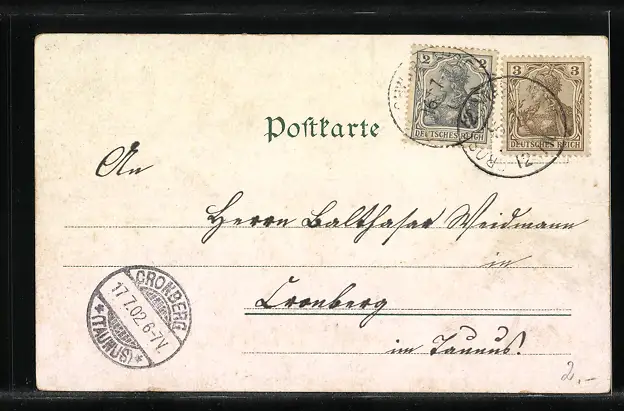 2 2
DEUTSCHES REICH
3 3
DEUTSCHES REICH
16.7
12
Postkarte
An
Herrn Balthasar Weidmann
in
Cronberg
im Taunus.
CRONBERG
17.7.02.6-7V.
*(TAUNUS)*
2.-